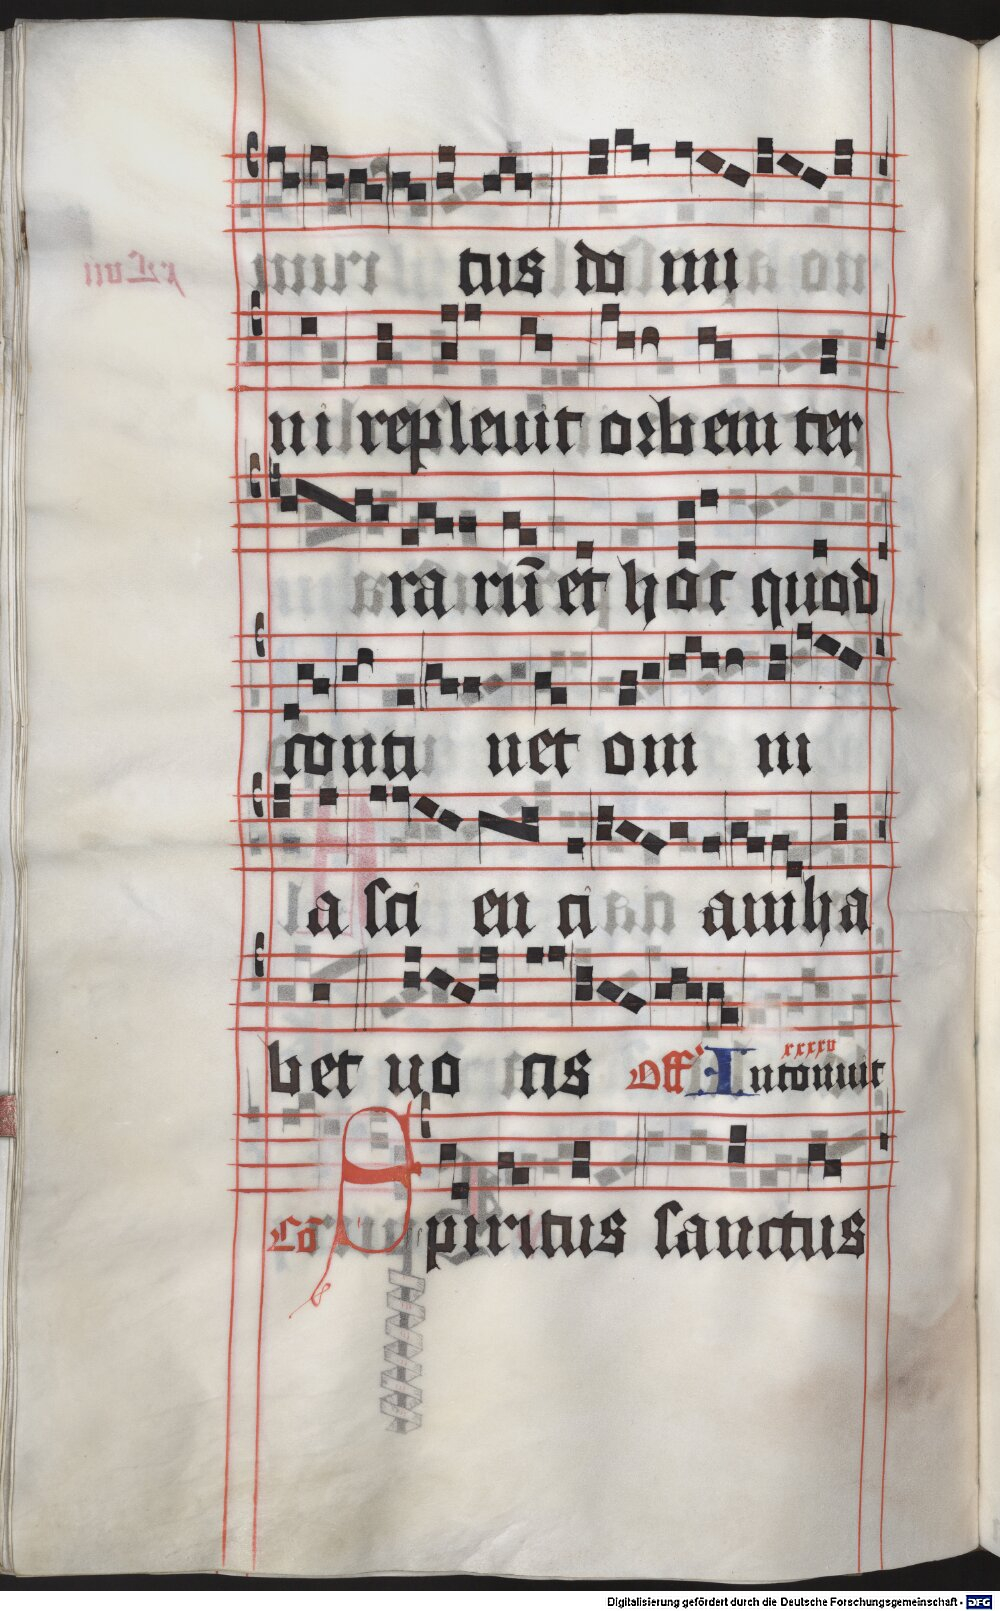 tus do mi
ni repleuit orbem ter
ra rū et hoc quod
conti net om ni
a sci en ci am ha
bet uo cis Off' Intonuit
xxxxv
Cō Spiritus sanctus
Digitalisierung gefördert durch die Deutsche Forschungsgemeinschaft - DFG